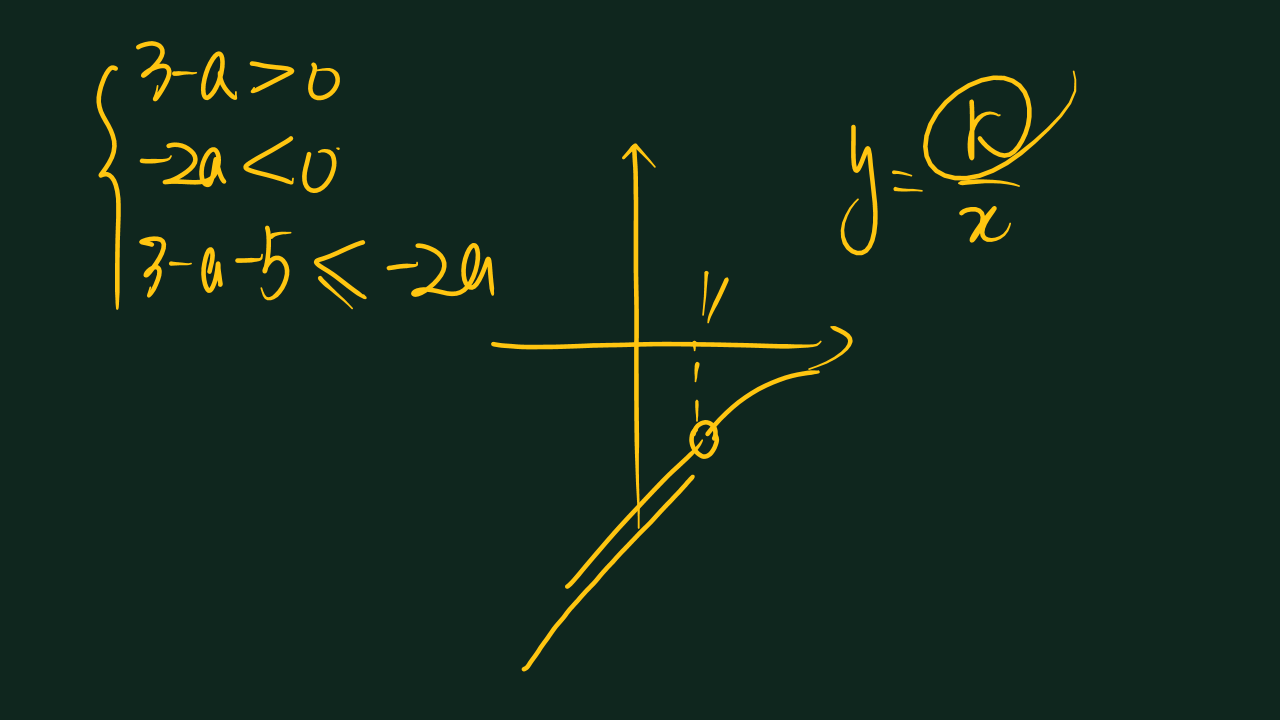 3-a>0
-2a<0
3-a-5≤-2a
y=k/x